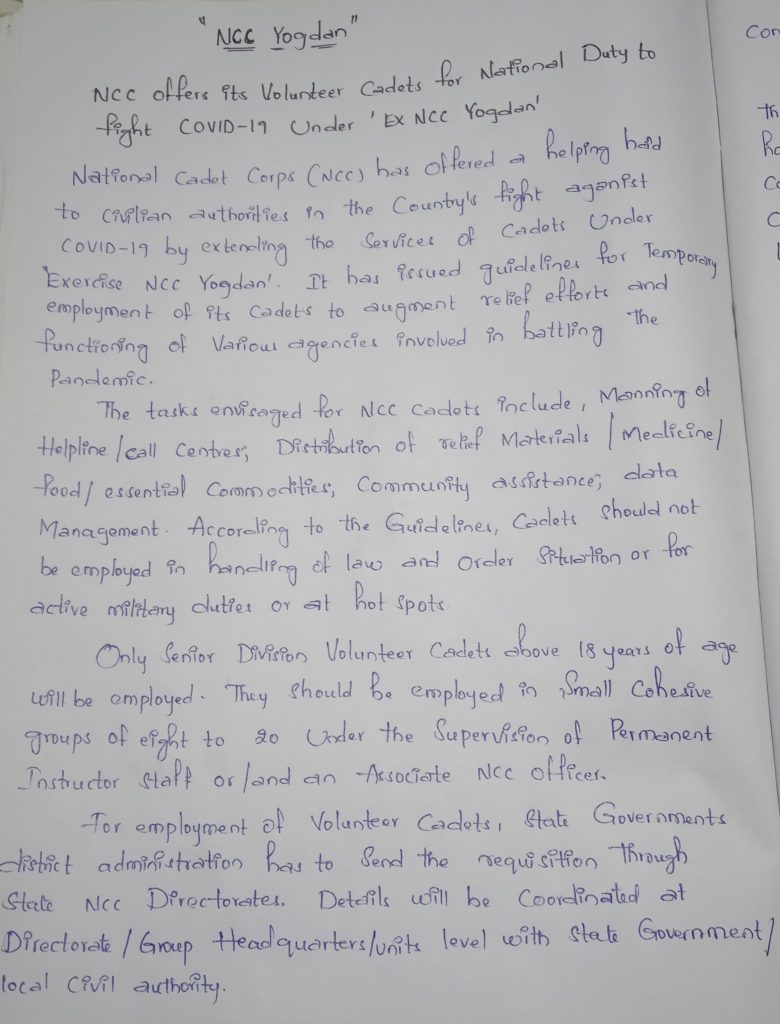 "NCC Yogdan"
NCC offers its Volunteer Cadets for National Duty to
fight COVID-19 Under 'EX NCC Yogdan'
National Cadet Corps (NCC) has offered a helping hand
to civilian authorities in the Country's fight aganist
COVID-19 by extending the Services of Cadets Under
'Exercise NCC Yogdan'. It has issued guidelines for Temporary
employment of its Cadets to augment relief efforts and
functioning of Various agencies involved in battling the
Pandemic.
The tasks envisaged for NCC cadets include, Manning of
Helpline/call Centres; Distribution of relief Materials/Medicine/
food/essential Commodities; Community assistance; data
Management. According to the Guidelines, Cadets Should not
be employed in handling of law and order Situation or for
active military duties or at hot spots.
Only Senior Division Volunteer Cadets above 18 years of age
will be employed. They Should be employed in Small Cohesive
groups of eight to 20 Under the Supervision of Permanent
Instructor Staff or/and an Associate NCC Officer.
For employment of Volunteer Cadets, State Governments
district administration has to Send the requisition Through
State NCC Directorates. Details will be Coordinated at
Directorate/Group Headquarters/units level with State Government/
local Civil authority.
Con
th
ha
Co
C